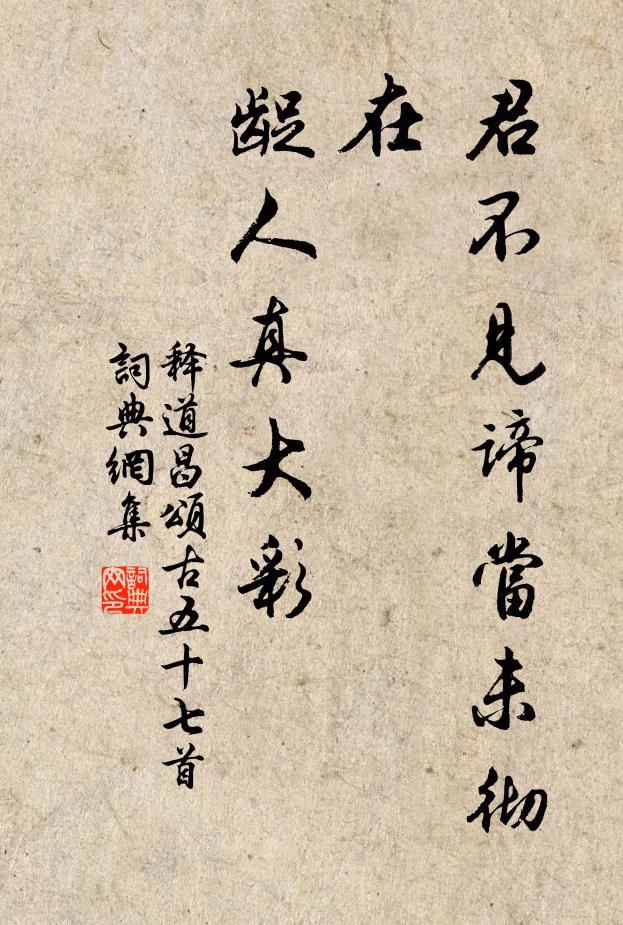 君不見諦當未彻
在
齪人真大彩
释道昌頌古五十七首
詞典網集
詞典
网印